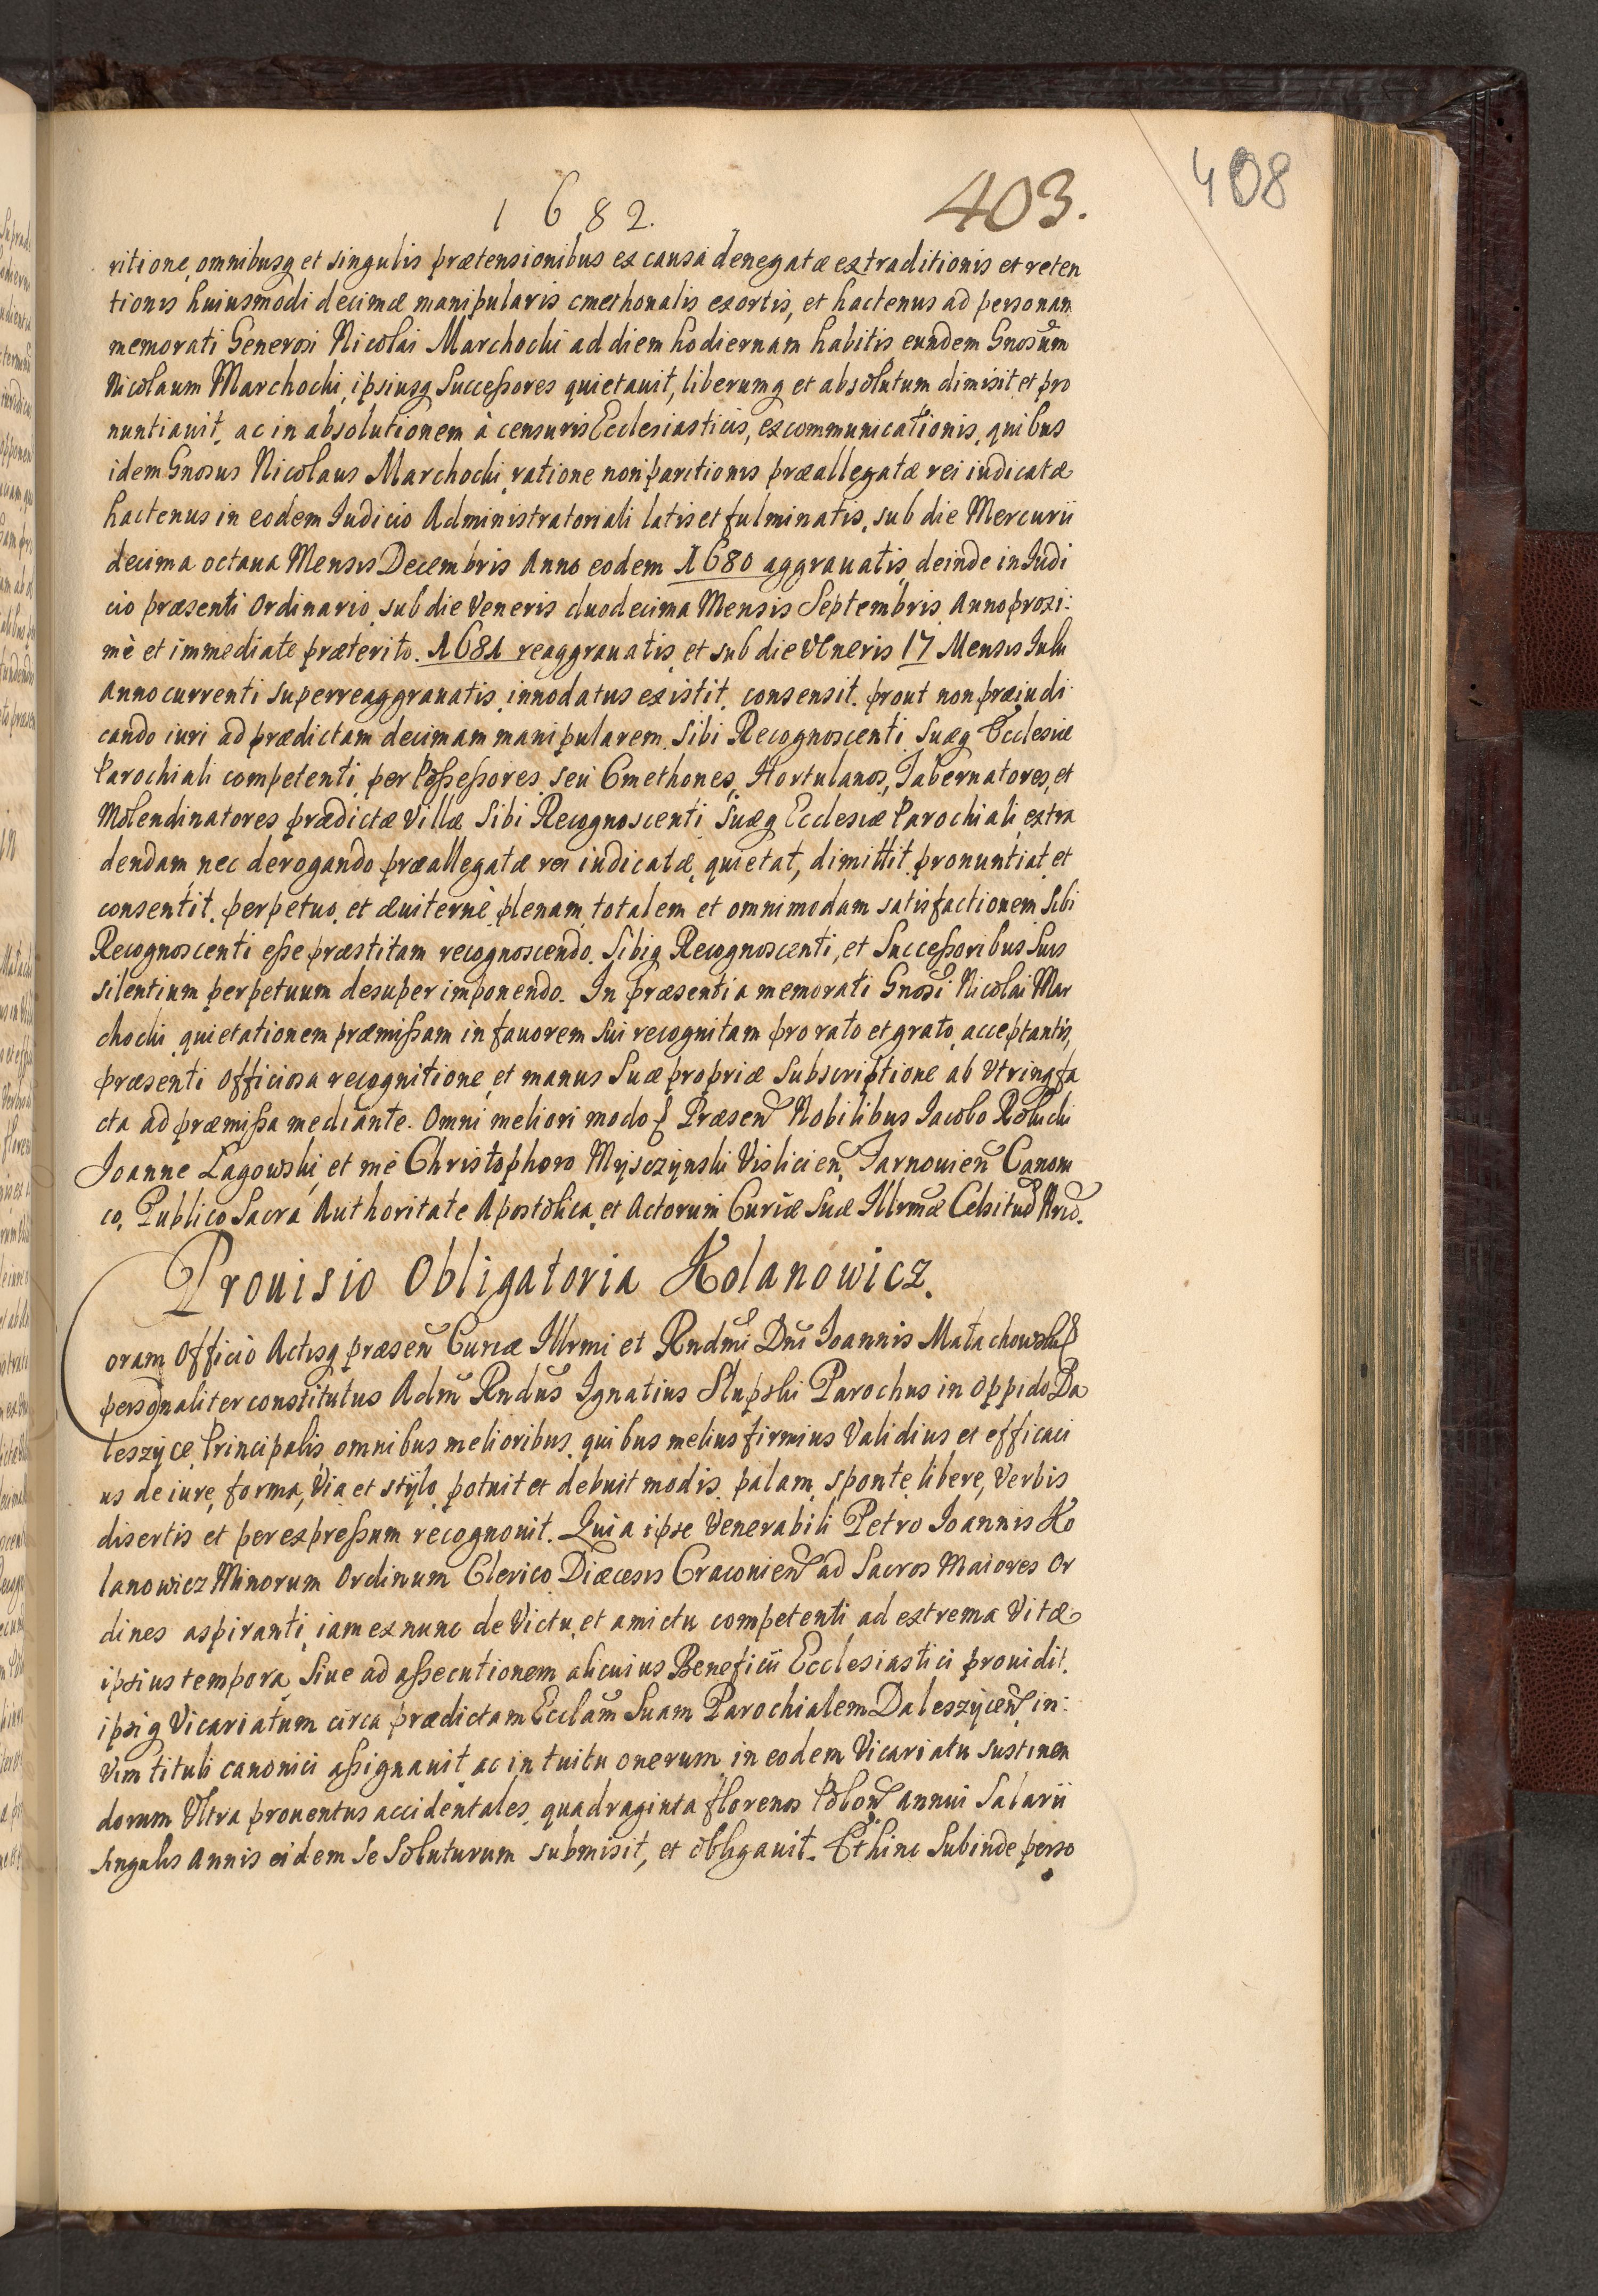 1682.
403.
408
ritione, omnibusq et singulis prætensionibus ex causa denegatæ extraditionis et reten
tionis huiusmodi decimæ manipularis cmethonalis exortis, et hactenus ad personam
memorati Generosi Nicolai Marchocki ad diem hodiernam habitis eundem Gnosum
Nicolaum Marchocki, ipsiusq Successores quietauit, liberumq et absolutum dimisit et pro
nuntiauit, ac in absolutionem à censuris Ecclesiasticis, excommunicationis, quibus
idem Gnosus Nicolaus Marchocki, ratione non paritionis præallegatæ rei iudicatæ
hactenus in eodem Iudicio Administratoriali latis et fulminatis, sub die Mercurii
decima octaua Mensis Decembris Anno eodem 1680 aggrauatis, deinde in Iudi
cio præsenti Ordinario, sub die Veneris duodecima Mensis Septembris Anno proxi:
mè et immediate præterito. 1681 reaggrauatis, et sub die Veneris 17 Mensis Iulii
Anno currenti superreaggrauatis, innodatus existit, consensit. prout non præiudi
cando iuri ad prædictam decimam manipularem, Sibi Recognoscenti, Suæq Ecclesiæ
Parochiali competenti, per Possessores, seu Cmethones, Hortulanos, Tabernatores, et
Molendinatores prædictæ Villæ Sibi Recognoscenti, Suæq Ecclesiæ Parochiali, extra
dendam nec derogando præallegatæ rei iudicatæ, quietat, dimittit, pronuntiat, et
consentit, perpetuo, et æuiternè, plenam, totalem et omnimodam satisfactionem Sibi
Recognoscenti esse præstitam recognoscendo. Sibiq Recognoscenti, et Successoribus Suis
silentium perpetuum desuper imponendo. In præsentia memorati Gnosi Nicolai Mar
chocki quietationem præmissam in fauorem Sui recognitam pro rato et grato acceptantis,
præsenti Officiosa recognitione, et manus Suæ propriæ Subscriptione, ab Vtrinq fa
cta ad præmissa mediante. Omni meliori modo Præsen Nobilibus Iacobo
Ioanne Lagowski, et me Christophoro Myszczynski Vislicien, Tarnouien Canoni
co, Publico Sacra Authoritate Apostolica, et Actorum Curiæ Suæ Illrmæ Celsitud
Prouisio Obligatoria Kolanowicz.
Coram Officio Actisq præsen Curiæ Illrmi et Rndmi Dni Ioannis Małachowski
personaliter constitutus Adm Rndus Ignatius Słupski Parochus in Oppido Da
leszyce, Principalis, omnibus melioribus, quibus melius firmius Validius, et efficaci
us de iure, forma, Via et stylo, potuit et debuit modis, palam, sponte, libere, Verbis
disertis et per expressum recognouit. Quia ipse Venerabili Petro Ioannis Ko
lanowicz Minorum Ordinum Clerico Diæcesis Cracouien ad Sacros Maiores Or
dines aspiranti, iam ex nunc de Victu, et amictu competenti, ad extrema Vitæ
ipsius tempora, Siue ad assecutionem alicuius Beneficii Ecclesiastici prouidit,
ipsiq Vicariatum circa prædictam Ecclam Suam Parochialem Daleszycen in:
Vim tituli canonici assignauit, ac in tuitu onerum, in eodem Vicariatu sustinen
dorum Vltra prouentus accidentales, quadraginta florenos Polon annui Salarii
singulis Annis eidem Se Soluturum submisit, et obligauit. Et hinc Subinde perso